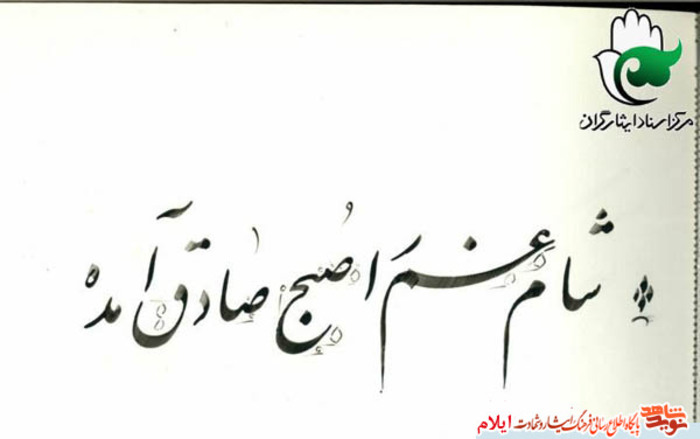 مرکز اسناد ایثارگران
شام غم را صبح صادق آمده
نوید شاهد
پایگاه اطلاع رسانی فرهنگ ایثار و شهادت ایلام